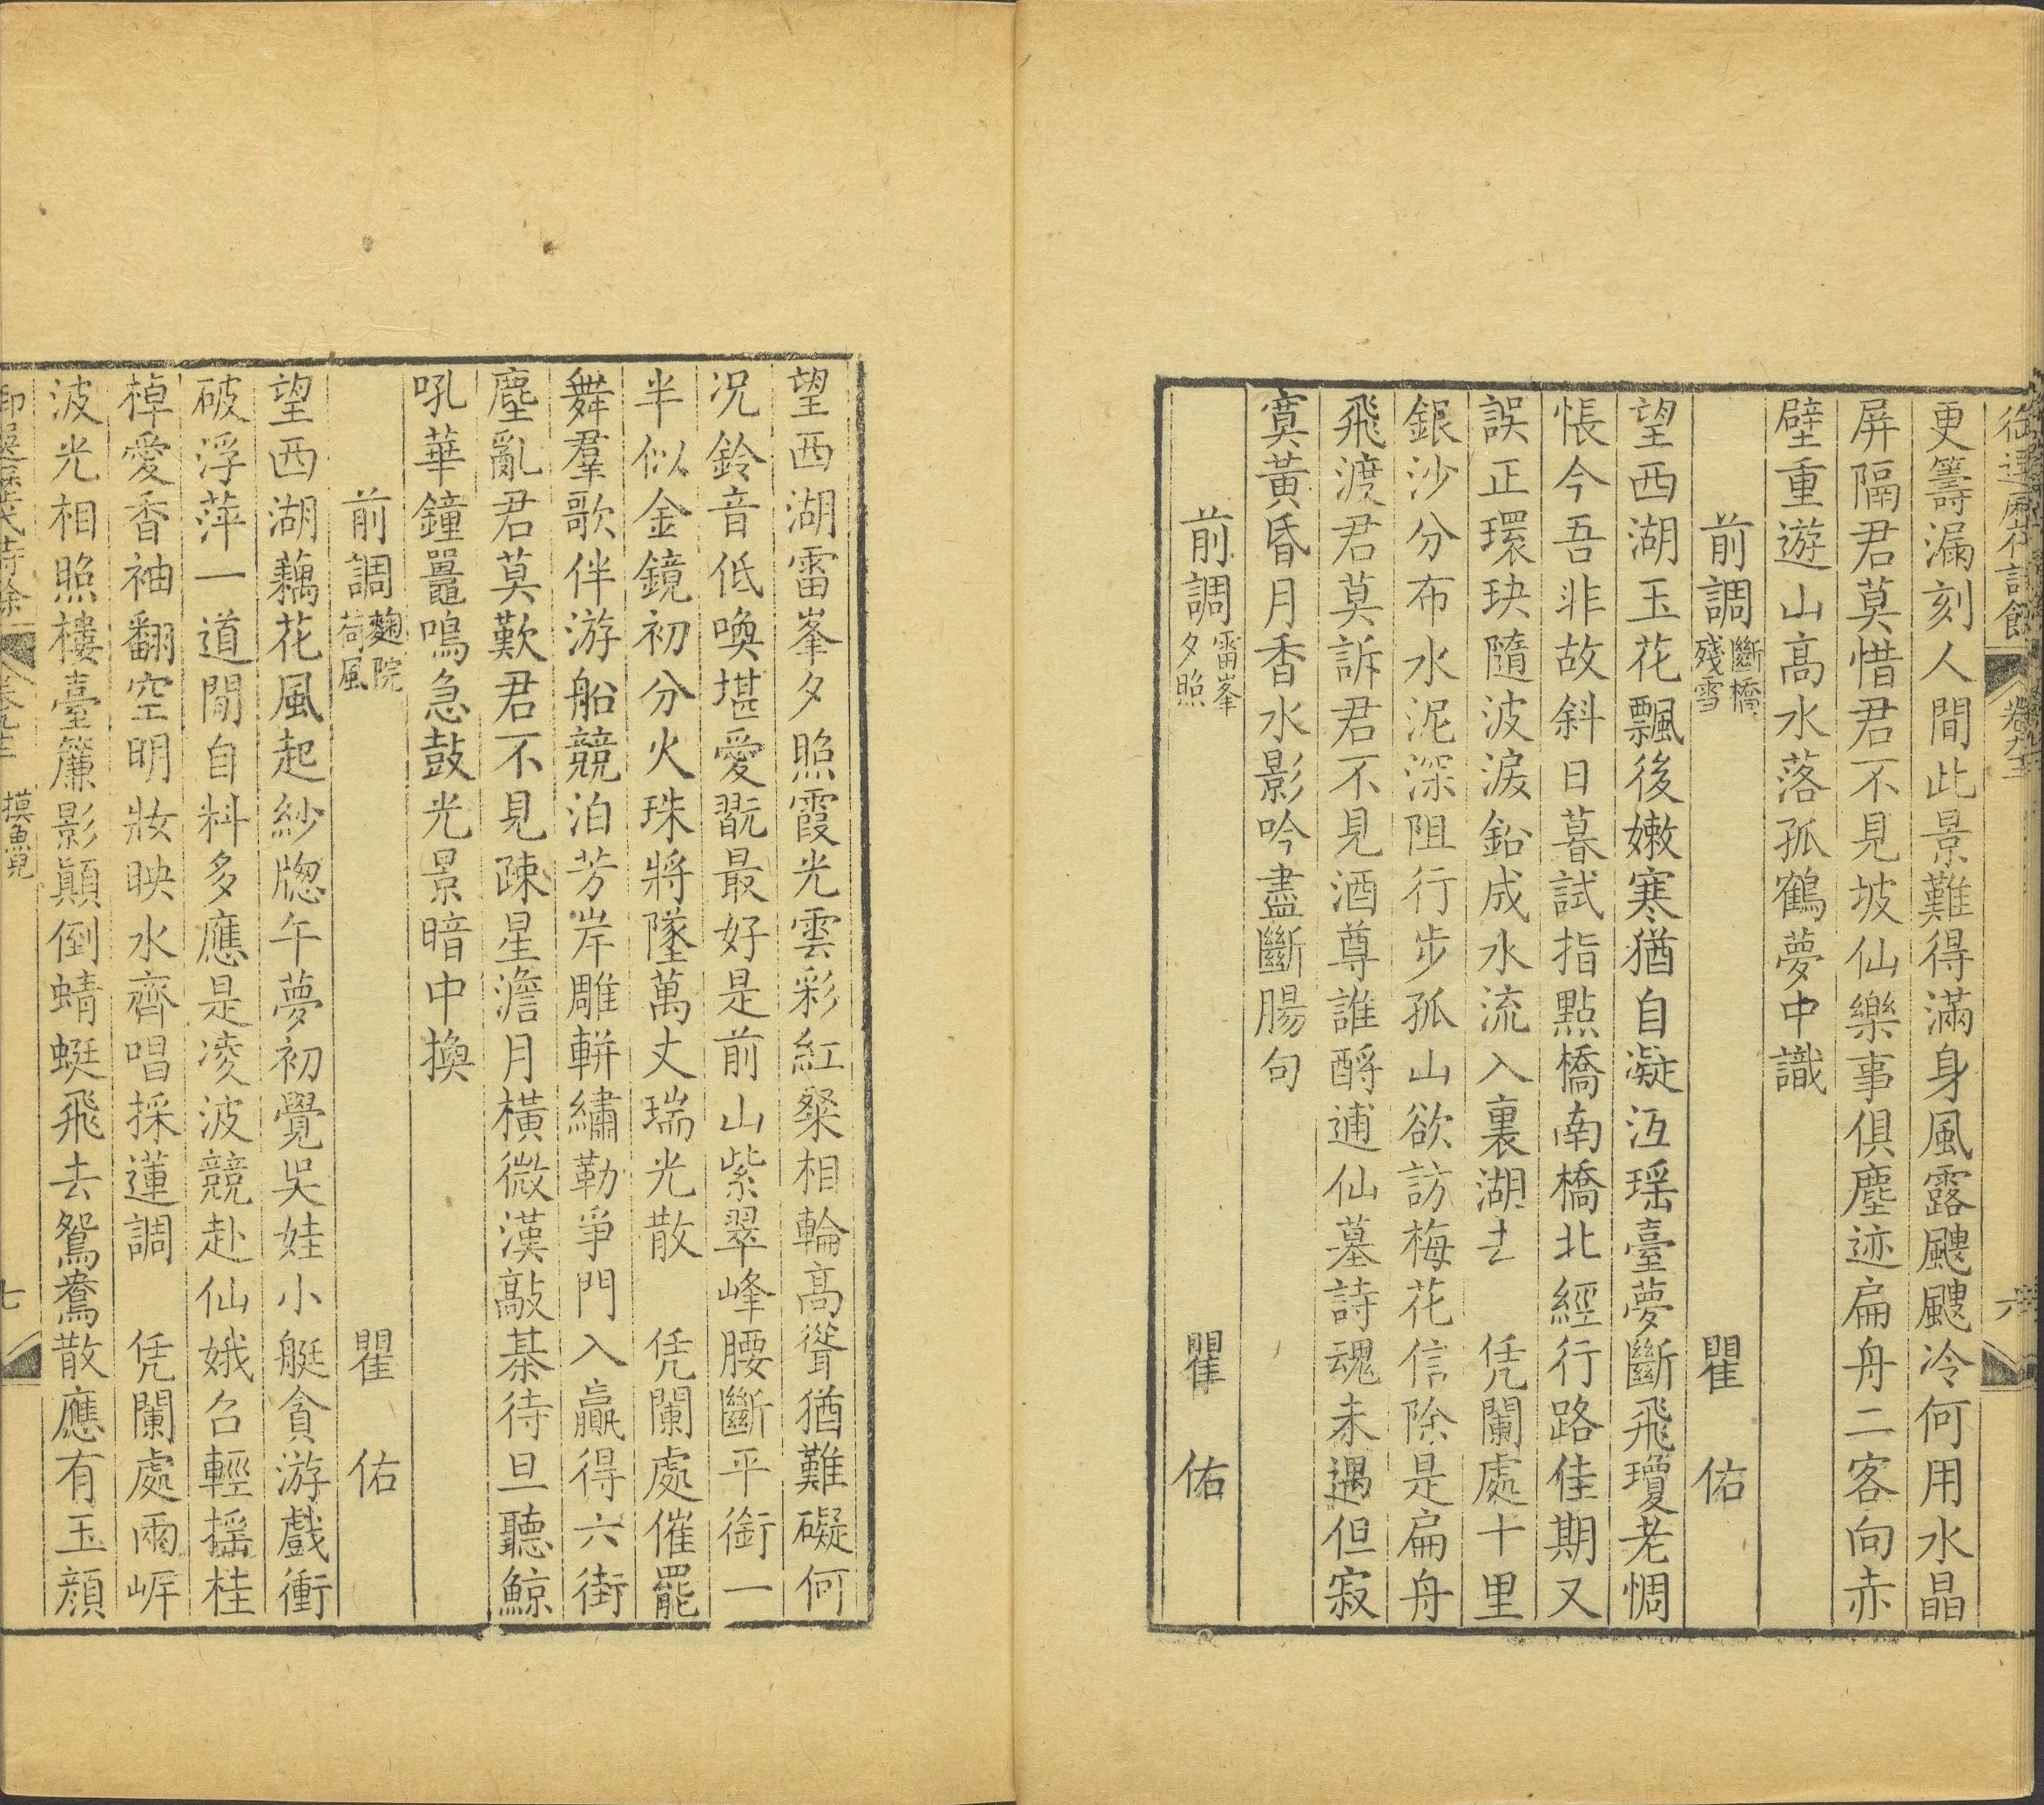 御選歷代詩餘 卷九十三 六
更籌漏刻人間此景難得滿身風露颼颼冷何用水晶
屏隔君莫惜君不見坡仙樂事俱塵迹扁舟二客向赤
壁重遊山高水落孤鶴夢中識
前調斷橋殘雪 瞿佑
望西湖玉花飄後嫩寒猶自凝沍瑶臺夢斷飛瓊老惆
悵今吾非故斜日暮試指點橋南橋北經行路佳期又
誤正環玦隨波淚鉛成水流入裏湖去 凭闌處十里
銀沙分布水泥深阻行步孤山欲訪梅花信除是扁舟
飛渡君莫訴君不見酒尊誰酹逋仙墓詩魂未遇但寂
寞黃昏月香水影吟盡斷腸句
前調雷峯夕照 瞿佑
望西湖雷峯夕照霞光雲彩紅粲相輪高聳猶難礙何
况鈴音低喚堪愛翫最好是前山紫翠峰腰斷平銜一
半似金鏡初分火珠將墜萬丈瑞光散 凭闌處催罷
舞羣歌伴游船競泊芳岸雕輧繡勒爭門入贏得六街
塵亂君莫歎君不見疎星澹月橫微漢敲棊待旦聽鯨
吼華鐘鼉鳴急鼓光景暗中換
前調麴院荷風 瞿佑
望西湖藕花風起紗牎午夢初覺吳娃小艇貪游戲衝
破浮萍一道閒自料多應是凌波競赴仙娥召輕摇桂
棹愛香袖翻空明妝映水齊唱採蓮調 凭闌處兩岸
波光相照樓臺簾影顛倒蜻蜓飛去鴛鴦散應有玉顔
御選歷代詩餘 卷九十三 摸魚兒 七